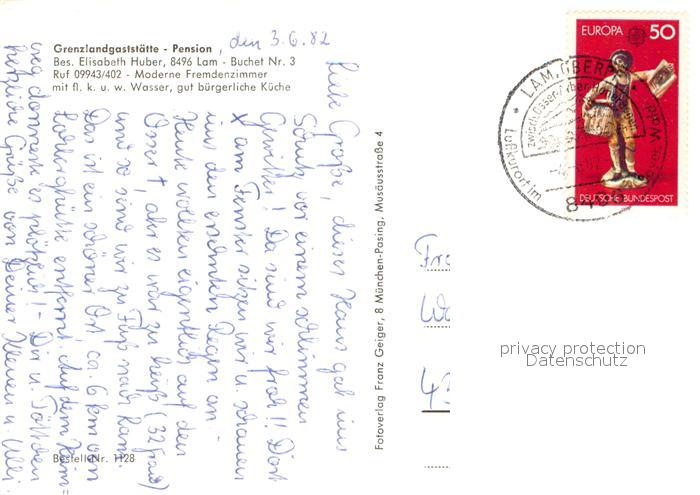 Grenzlandgaststätte - Pension
Bes. Elisabeth Huber, 8496 Lam - Buchet Nr. 3
Ruf 09943/402 - Moderne Fremdenzimmer
mit fl. k. u. w. Wasser, gut bürgerliche Küche
, den 3.6.82
Liebe Große, dieses Haus gab uns
Schutz vor einem schlimmen
Gewitter! Da sind wir froh!! Dort
x am Fenster sitzen wir u. schauen
in den ersehnten Regen an -
Heute wollten eigentlich auf den
Osser, aber es war zu heiß (32 Grad)
und so sind wir zu Fuß nach Lam.
Das ist ein schöner Ort ca. 6 km von
entfernt, Auf dem Heim"
weg donnerte es plötzlich! - Dir u.
herzliche Grüße von Deiner u. Uli
Bestell-Nr. 1128
Fotoverlag Franz Geiger, 8 München-Pasing, Musäusstraße 4
EUROPA 50
DEUTSCHE BUNDESPOST
LAM, OBERPF
Luftkurort im
zwischen Osser
Wald
849
Fr
W
43
privacy protection
Datenschutz